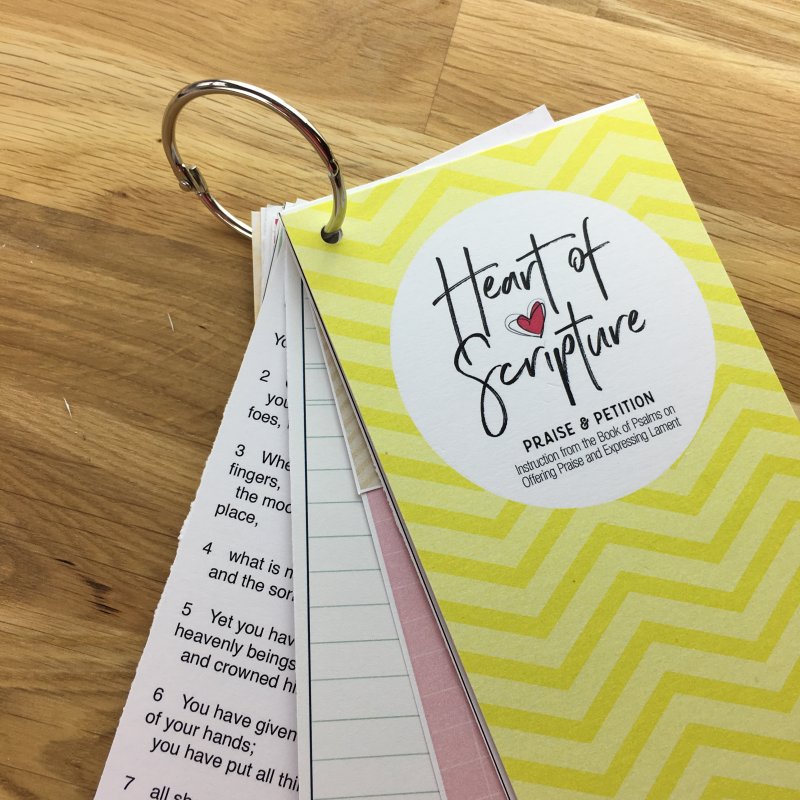 Heart of
Scripture
PRAISE & PETITION
Instruction from the Book of Psalms on
Offering Praise and Expressing Lament
2
foes,
3 Whe
fingers,
the moo
place,
4 what is
and the
5 Yet you hav
heavenly beings
and crowned
6 You have given
of your hands;
you have put all
7 all